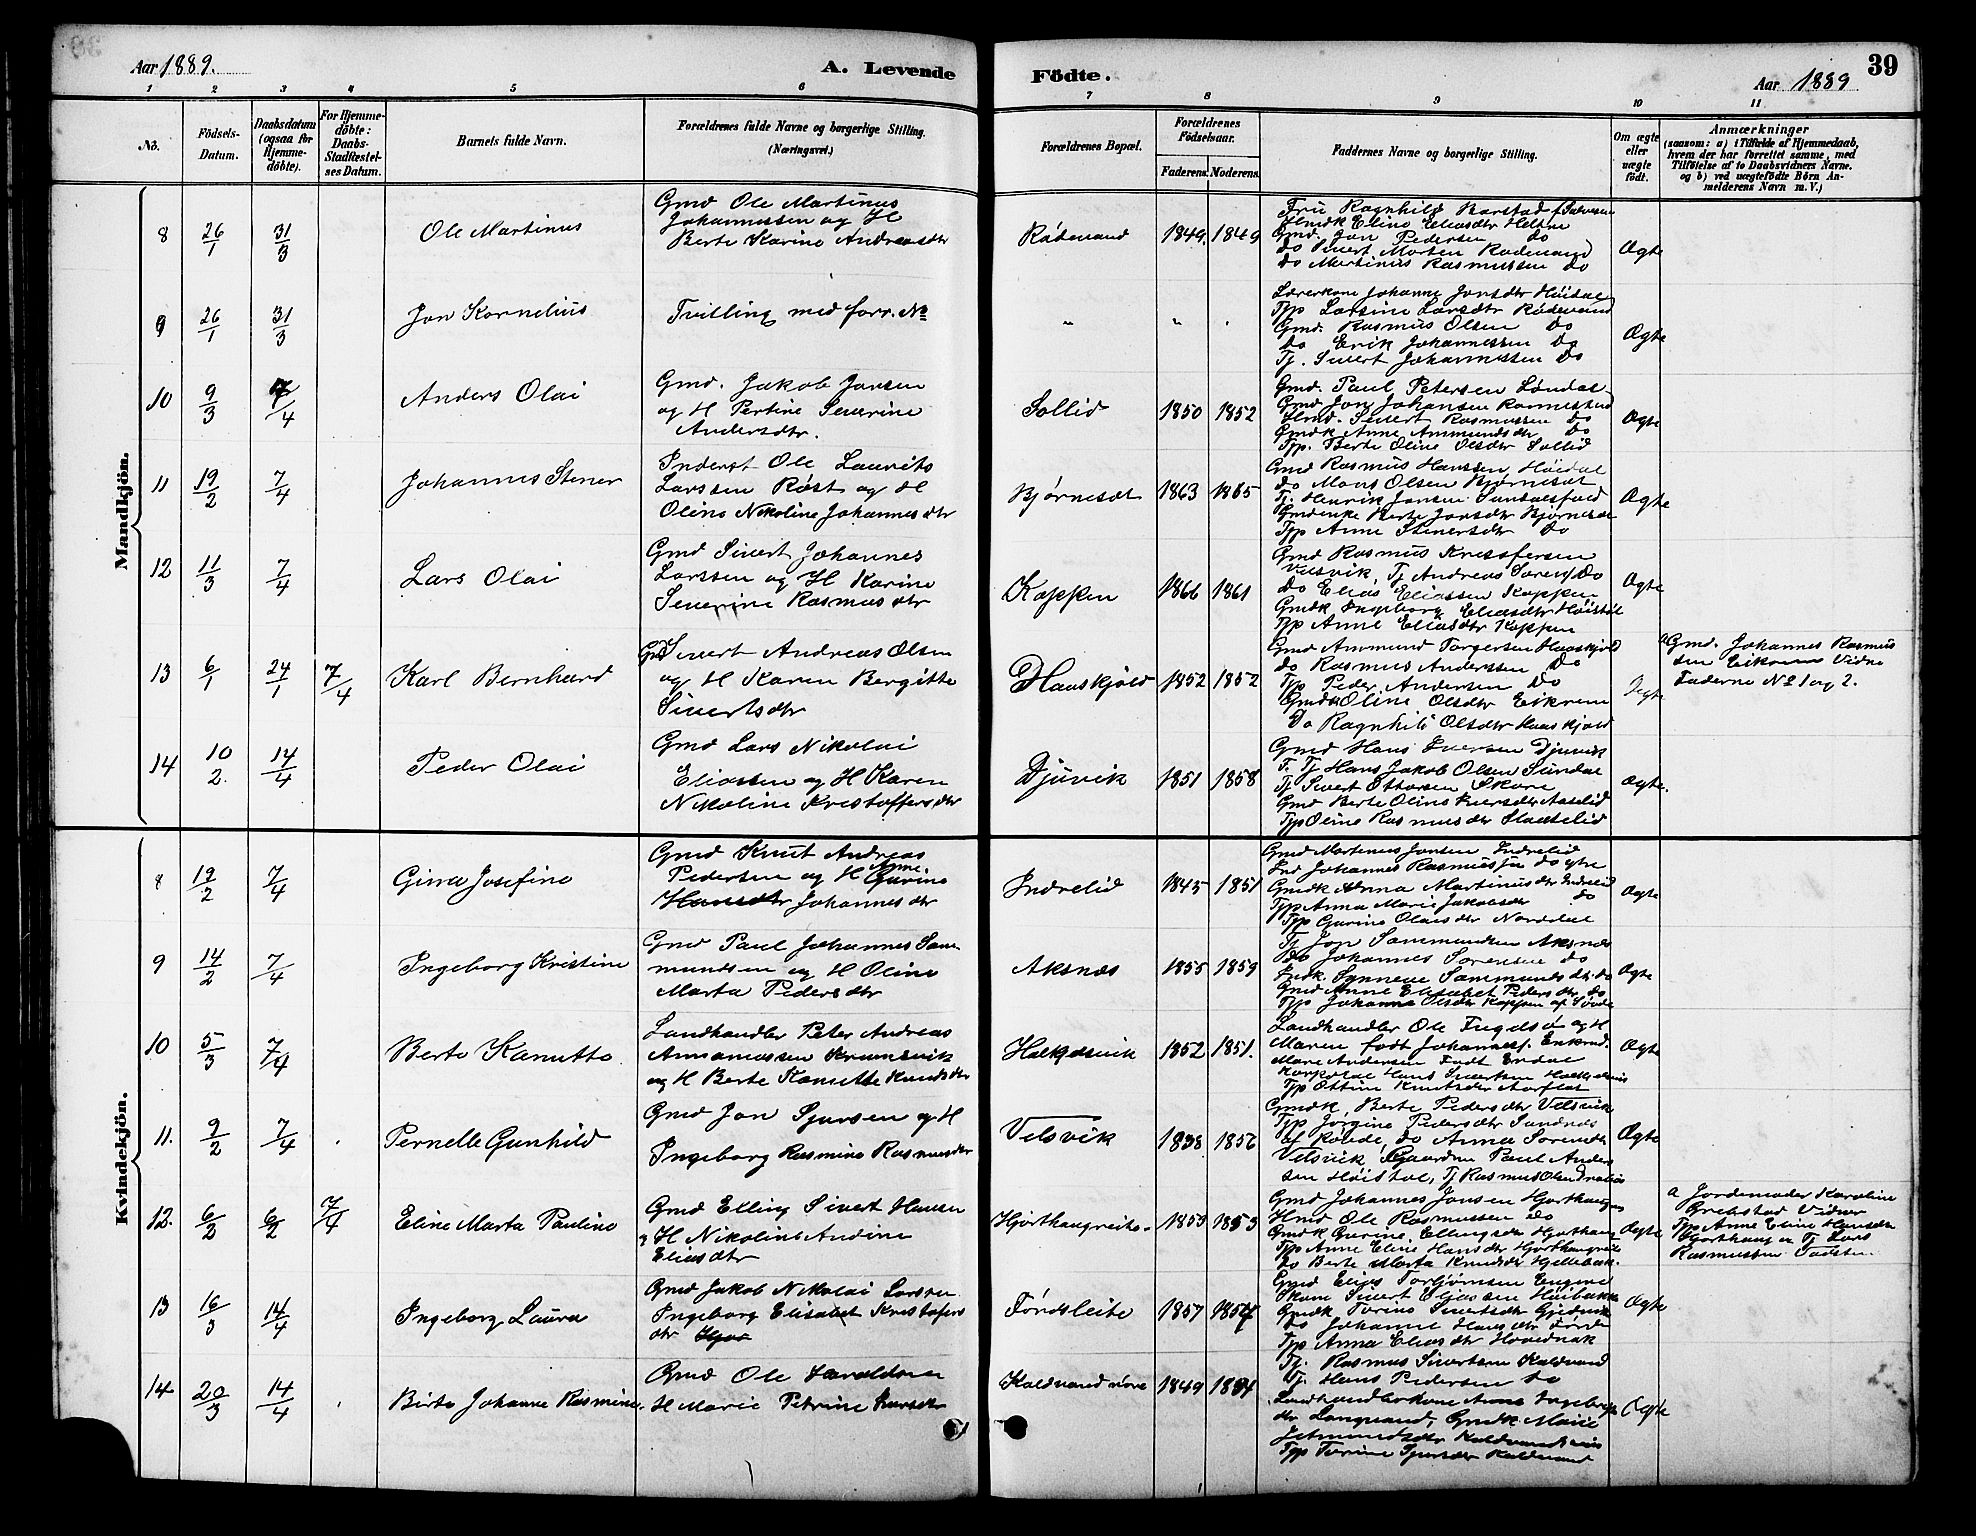 Aar 1889.
A. Levende Födte.
Aar 1889
39
1 2 3 4 5 6 7 8 9 10 11
No.
Födsels-Datum.
Daabsdatum (ogsaa for Hjemmedöbte).
For Hjemmedöbte: Daabs-Stadfæstelses Datum.
Barnets fulde Navn.
Forældrenes fulde Navne og borgerlige Stilling.
(Næringsvei.)
Forældrenes Bopæl.
Forældrenes Födselsaar.
Faderens. Moderens.
Faddernes Navne og borgerlige Stilling.
Om ægte eller uægte födt.
Anmærkninger
(saasom: a) i Tilfælde af Hjemmedaab,
hvem der har forrettet samme, med
Tilföielse af to Daabsvidners Navne.
og b) ved uægtefödte Börn An-
melderens Navn m. V.)
Mandkjön.
8 26/1 31/3 Ole Martinus
Gmd Ole Martinus
Johannessen og H
Berte Karine Andreasdtr
Rødevand 1849. 1849
Fru Ragnhild Barstad
Hmdk Eline Eliasdtr
Gmd. Jon Pedersen Do
Do Sivert Morten Rødevand
Do Martinus Rasmussen Do
Ægte
9 26/1 31/3 Jon Kornelius
Tvilling med forr. No
" " "
Lærerkone Johanne Jonsdtr Høidal
Typ Larsine Larsdtr Rødevand
Gmd. Rasmus Olsen Do
Do Erik Johannessen Do
Tj. Sivert Johannessen Do
Ægte
10 9/3 7/4 Anders Olai
Gmd. Jakob Jonsen
og H Pertine Severine
Andersdtr.
Sollid 1850 1852
Gmd. Paul Petersen Løndal
Gmd Jon Johansen
Hmd. Sivert Rasmussen Do
Gmdk Anne Ammundsdtr Do
Typ. Berte Oline Olsdtr Sollid
Ægte
11 19/2 7/4 Johannes Stener
Inderst Ole Laurits
Larssen Røst og H
Oline Nikoline Johannesdtr
Bjørnesæt 1863 1865
Gmd Rasmus Hanssen Høidal
Do Mons Olsen Bjørnesæt
Tj. Henrik Jonsen
Gmdenke Berte Jonsdtr Bjørnesæt
Typ Anne Stenersdtr Do
Ægte
12 11/3 7/4 Lars Olai
Gmd Sivert Johannes
Larssen og H Karine
Severine Rasmusdtr
Koppen 1866 1861
Gmd Rasmus Kristofersen
Velsvik, Tj Andreas Do
Do Elias Eliassen Koppen
Gmdk Ingeborg Eliasdtr
Typ Anne Eliasdtr Koppen
Ægte
13 6/1 24/1 7/4 Karl Bernhard
Gmd Sivert Andreas Olsen
og H Karen Bergitte
Sivertsdtr
Haaskjold 1852 1852
Gmd Ammund Torgersen Haaskjold
Do Rasmus Anderssen Do
Typ Peder Andersen Do
Gmdk Oline Olsdtr Eikrem
Do Ragnhild Olsdtr Haaskjold
Ægte
a Gmd. Johannes Rasmus
sen Eikrem Vidne
Faderne No 1 og 2.
14 10/2. 14/4 Peder Olai
Gmd Lars Nikolai
Eliassen og H Karen
Nikoline Kristoffersdtr
Djuvik 1851 1858
Gmd Hans Iversen Djuvik
F. Tj Hans Jakob Olsen Sundal
Tj Sivert Ottarsen Skare
Gmd Berte Oline Iversdtr Aaselid
Typ Oline Rasmusdtr
Ægte.
Kvindekjön.
8 19/2 7/4 Gina Josefine
Gmd Knut Andreas
Pedersen og H Anne Gurine
Hansdtr Johannesdtr
Indrelid 1845 1851
Gmd Martinus Jonsen Indrelid
Ind Johannes Rasmussen Do
Gmdk Anna Martinusdtr Indrelid
Typ Anna Marie Jakobsdtr Do
Typ Gurine Olaisdtr Norddal
Ægte
9 14/2 7/4 Ingeborg Kristine
Gmd Paul Johannes Sam-
mundsen og H Oline
Marta Pedersdtr
Aksnæs 1855 1859
Tj Jon Sammundsen Aksnæs
Do Johannes Sørensen do
Indk. Synneve Sammundsdtr. do
Gmd Anne Elisabet Pedersdtr do
Typ Johanne Olsdtr Koppen af Søvde
Ægte
10 5/3 7/4 Berte Kanutte.
Landhandler Peter Andreas
Annaniassen
og H Berte Kanutte Knudsdtr
1852 1851.
Landhandler Ole og H
Maren født
Mari Andersen født Endal
Hans Sivertsen
Typ Ottine Knutsdtr Aarflot
Ægte
11. 9/2 7/4 Pernelle Gunhild
Gmd Jon Sjursen og H
Ingeborg Rasmine Rasmusdtr
Velsvik 1838 1856
Gmdk, Berte Pedersdtr Velsvik
Typ Jørgine Pedersdtr Sandnæs
af Rovde, Do Anna Sørensdtr
Velsvik, Gaardm Paul Anders
sen Høistøl, Tj Rasmus Olsen
Ægte
12. 6/2 6/2 7/4 Eline Marta Pauline
Gmd Elling Sivert Hansen
H Nikoline Andine
Eliasdtr
Hjorthaugreits. 1853 1853
Gmd Johannes Jonsen Hjorthaugen
Hmd Ole Rasmussen Do
Gmdk Gurine Ellingsdtr Hjorthaug
Typ Anne Eline Hansdtr Hjorthaugreits
Do Berte Marta Knudsdtr Hjellebak.
Ægte
a Jordemoder Karoline
Grebstad Vidner
Typ Anne Eline Hansdtr
Hjorthaug og Tj Lars
Rasmussen
13 16/3 14/4 Ingeborg Laura
Gmd Jakob Nikolai Larsen
Ingeborg Elisabet Kristofers
dtr
Førdsleite 1857 1854
Gmd Elias Torbjørnsen
Sivert Eliassen
Gmdk Turine Sivertsdtr
Do Johanne Hansdtr Førde
Typ Anna Eliasdtr Hovednak
Ægte
14 20/3 14/4 Berte Johanne Rasmine.
Gmd Ole Haraldsen
H Marie Petrine
Kaldvand 1849
Tj. Rasmus Sivertsen Kaldvand
Tj. Hans Pedersen Do
Landhandlerkone Anne
dtr Langvand, Gmdk Marie
Typ Turine Sjursdtr Kaldvand
Ægte